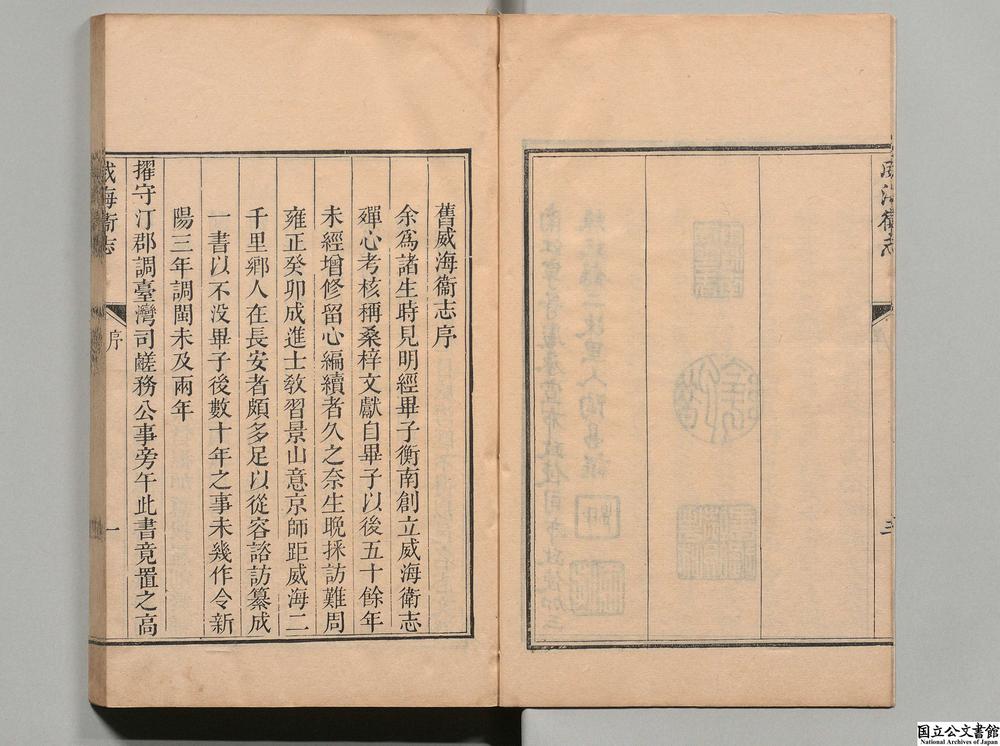 威海衛志
三
舊威海衞志序
余爲諸生時見明經畢子衡南創立威海衞志
殫心考核稱桑梓文獻自畢子以後五十餘年
未經增修留心編續者久之奈生晚採訪難周
雍正癸卯成進士敎習景山意京師距威海二
千里鄕人在長安者頗多足以從容諮訪纂成
一書以不没畢子後數十年之事未幾作令新
陽三年調閩未及兩年
擢守汀郡調臺灣司鹺務公事旁午此書竟置之高
威海衞志
序
一
国立公文書館
National Archives of Japan